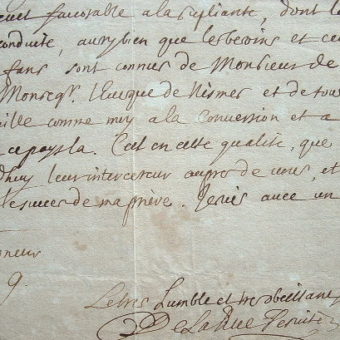 favorable a la supliante, dont l
conduite, aussy bien que les besoins et ce
fans sont connus de Monsieur de
Monseqr. l'Eveque de Nismes et de tou
ille comme moy a la conversion et a
ce pays la. C'est en cette qualité, que
dhuy leur intercesseur aupres de vous, et
le succes de ma priere. Je suis avec un
9.
Le tres humble et tres obeissant
De La Rue Jesuite